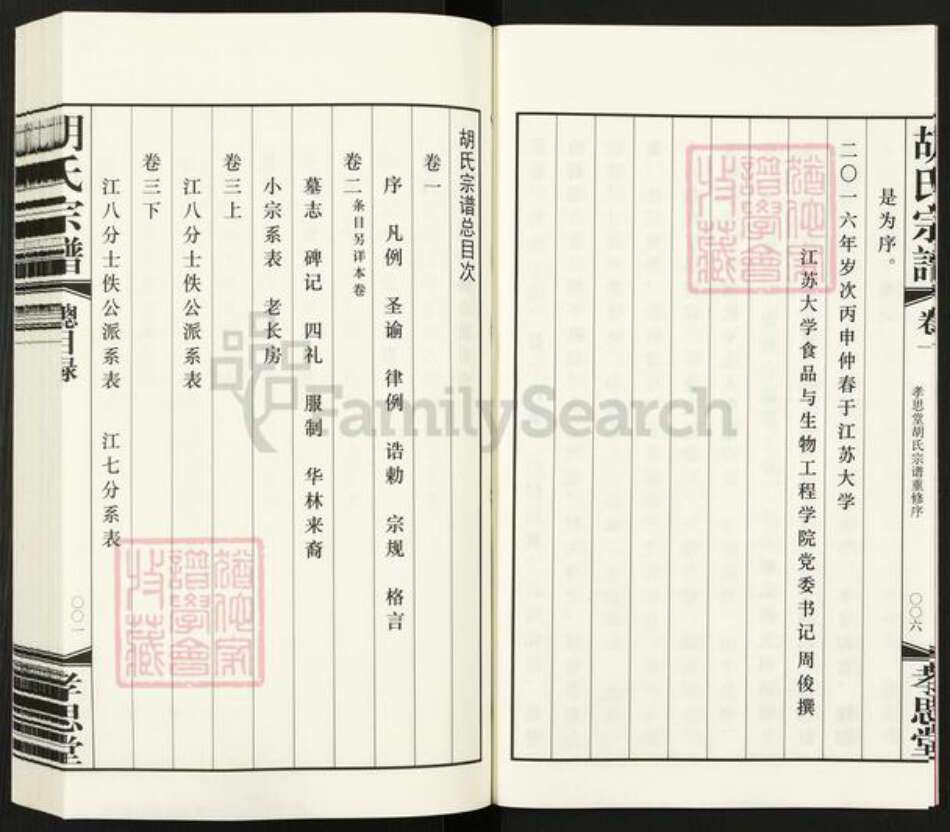 胡氏宗谱
卷一
孝思堂胡氏宗谱重修序
〇〇六
孝思堂
是为序。
二〇一六年岁次丙申仲春于江苏大学
江苏大学食品与生物工程学院党委书记 周俊撰
胡氏宗谱总目次
卷一
序 凡例 圣谕 律例 诰勅 宗规 格言
卷二 条目另详本卷
墓志 碑记 四礼 服制 华林来裔
小宗系表 老长房
卷三上
江八分士佚公派系表
卷三下
江八分士佚公派系表 江七分系表
胡氏宗譜
總目録
〇〇一
孝思堂
FamilySearch
譜學會
收藏
譜學會
收藏